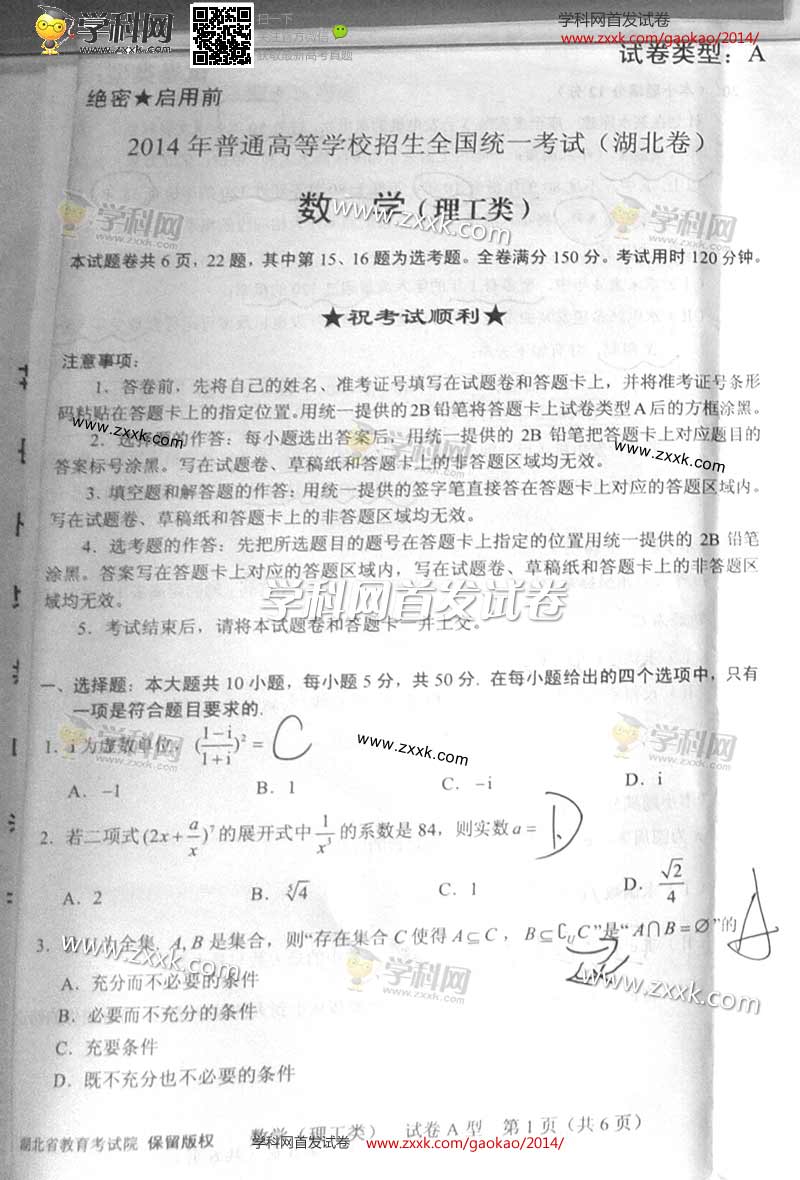 学科网
www.zxxk.com
扫一下
关注官方微信
获取最新高考真题
学科网首发试卷
www.zxxk.com/gaokao/2014/
试卷类型：A
绝密★启用前
2014 年普通高等学校招生全国统一考试（湖北卷）
数 学（理工类）
学科网
www.zxxk.com
www.zxxk.com
学科网
www.zxxk.com
本试题卷共 6 页，22 题，其中第 15、16 题为选考题。全卷满分 150 分。考试用时 120 分钟。
★祝考试顺利★
注意事项：
1、答卷前，先将自己的姓名、准考证号填写在试题卷和答题卡上，并将准考证号条形
码粘贴在答题卡上的指定位置。用统一提供的 2B 铅笔将答题卡上试卷类型 A 后的方框涂黑。
www.zxxk.com
2、选择题的作答：每小题选出答案后，用统一提供的 2B 铅笔把答题卡上对应题目的
答案标号涂黑。写在试题卷、草稿纸和答题卡上的非答题区域均无效。
学科网
www.zxxk.com
www.zxxk.com
3、填空题和解答题的作答：用统一提供的签字笔直接答在答题卡上对应的答题区域内。
写在试题卷、草稿纸和答题卡上的非答题区域均无效。
4、选考题的作答：先把所选题目的题号在答题卡上指定的位置用统一提供的 2B 铅笔
涂黑。答案写在答题卡上对应的答题区域内，写在试题卷、草稿纸和答题卡上的非答题区
域均无效。
学科网首发试卷
5、考试结束后，请将本试题卷和答题卡一并上交。
一、选择题：本大题共 10 小题，每小题 5 分，共 50 分. 在每小题给出的四个选项中，只有
一项是符合题目要求的.
学科网
www.zxxk.com
www.zxxk.com
学科网
www.zxxk.com
1. i 为虚数单位，(\frac{1-i}{1+i})^2 = C
A. -1 B. 1 C. -i D. i
2. 若二项式 (2x + \frac{a}{x})^7 的展开式中 \frac{1}{x^3} 的系数是 84，则实数 a = D
A. 2 B. \sqrt[5]{4} C. 1 D. \frac{\sqrt{2}}{4}
3. 设 U 为全集. A, B 是集合，则“存在集合 C 使得 A⊆C，B⊆∁_U C”是“A∩B=∅”的 A
A. 充分而不必要的条件
学科网
www.zxxk.com
www.zxxk.com
B. 必要而不充分的条件
C. 充要条件
D. 既不充分也不必要的条件
湖北省教育考试院 保留版权 数学（理工类） 试卷 A 型 第 1 页（共 6 页）
学科网首发试卷 www.zxxk.com/gaokao/2014/